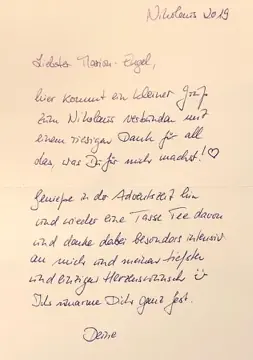 Nikolaus 2019
Liebster Marion-Engel,
hier kommt ein kleiner Gruß
zum Nikolaus verbunden mit
einem riesigen Dank für all
das, was Du für mich machst! ♡
Genieße in der Adventszeit hin
und wieder eine Tasse Tee davon
und denke dabei besonders intensiv
an mich und meinen tiefsten
und einzigen Herzenswunsch ☺
Ich umarme Dich ganz fest.
Deine